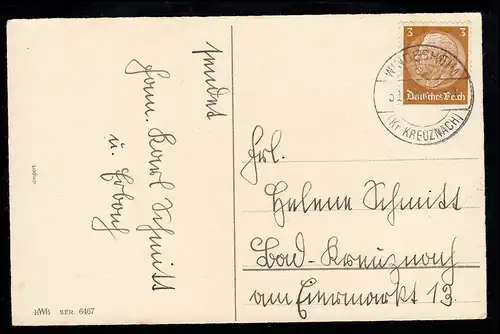 sendet
Fam. Karl Schmitt
u. Erbach
HWB SER. 6467
3 3
Deutsches Reich
WINDESHEIM
(Kr. KREUZNACH)
Frl.
Helene Schmitt
Bad-Kreuznach
am Eiermarkt 13.